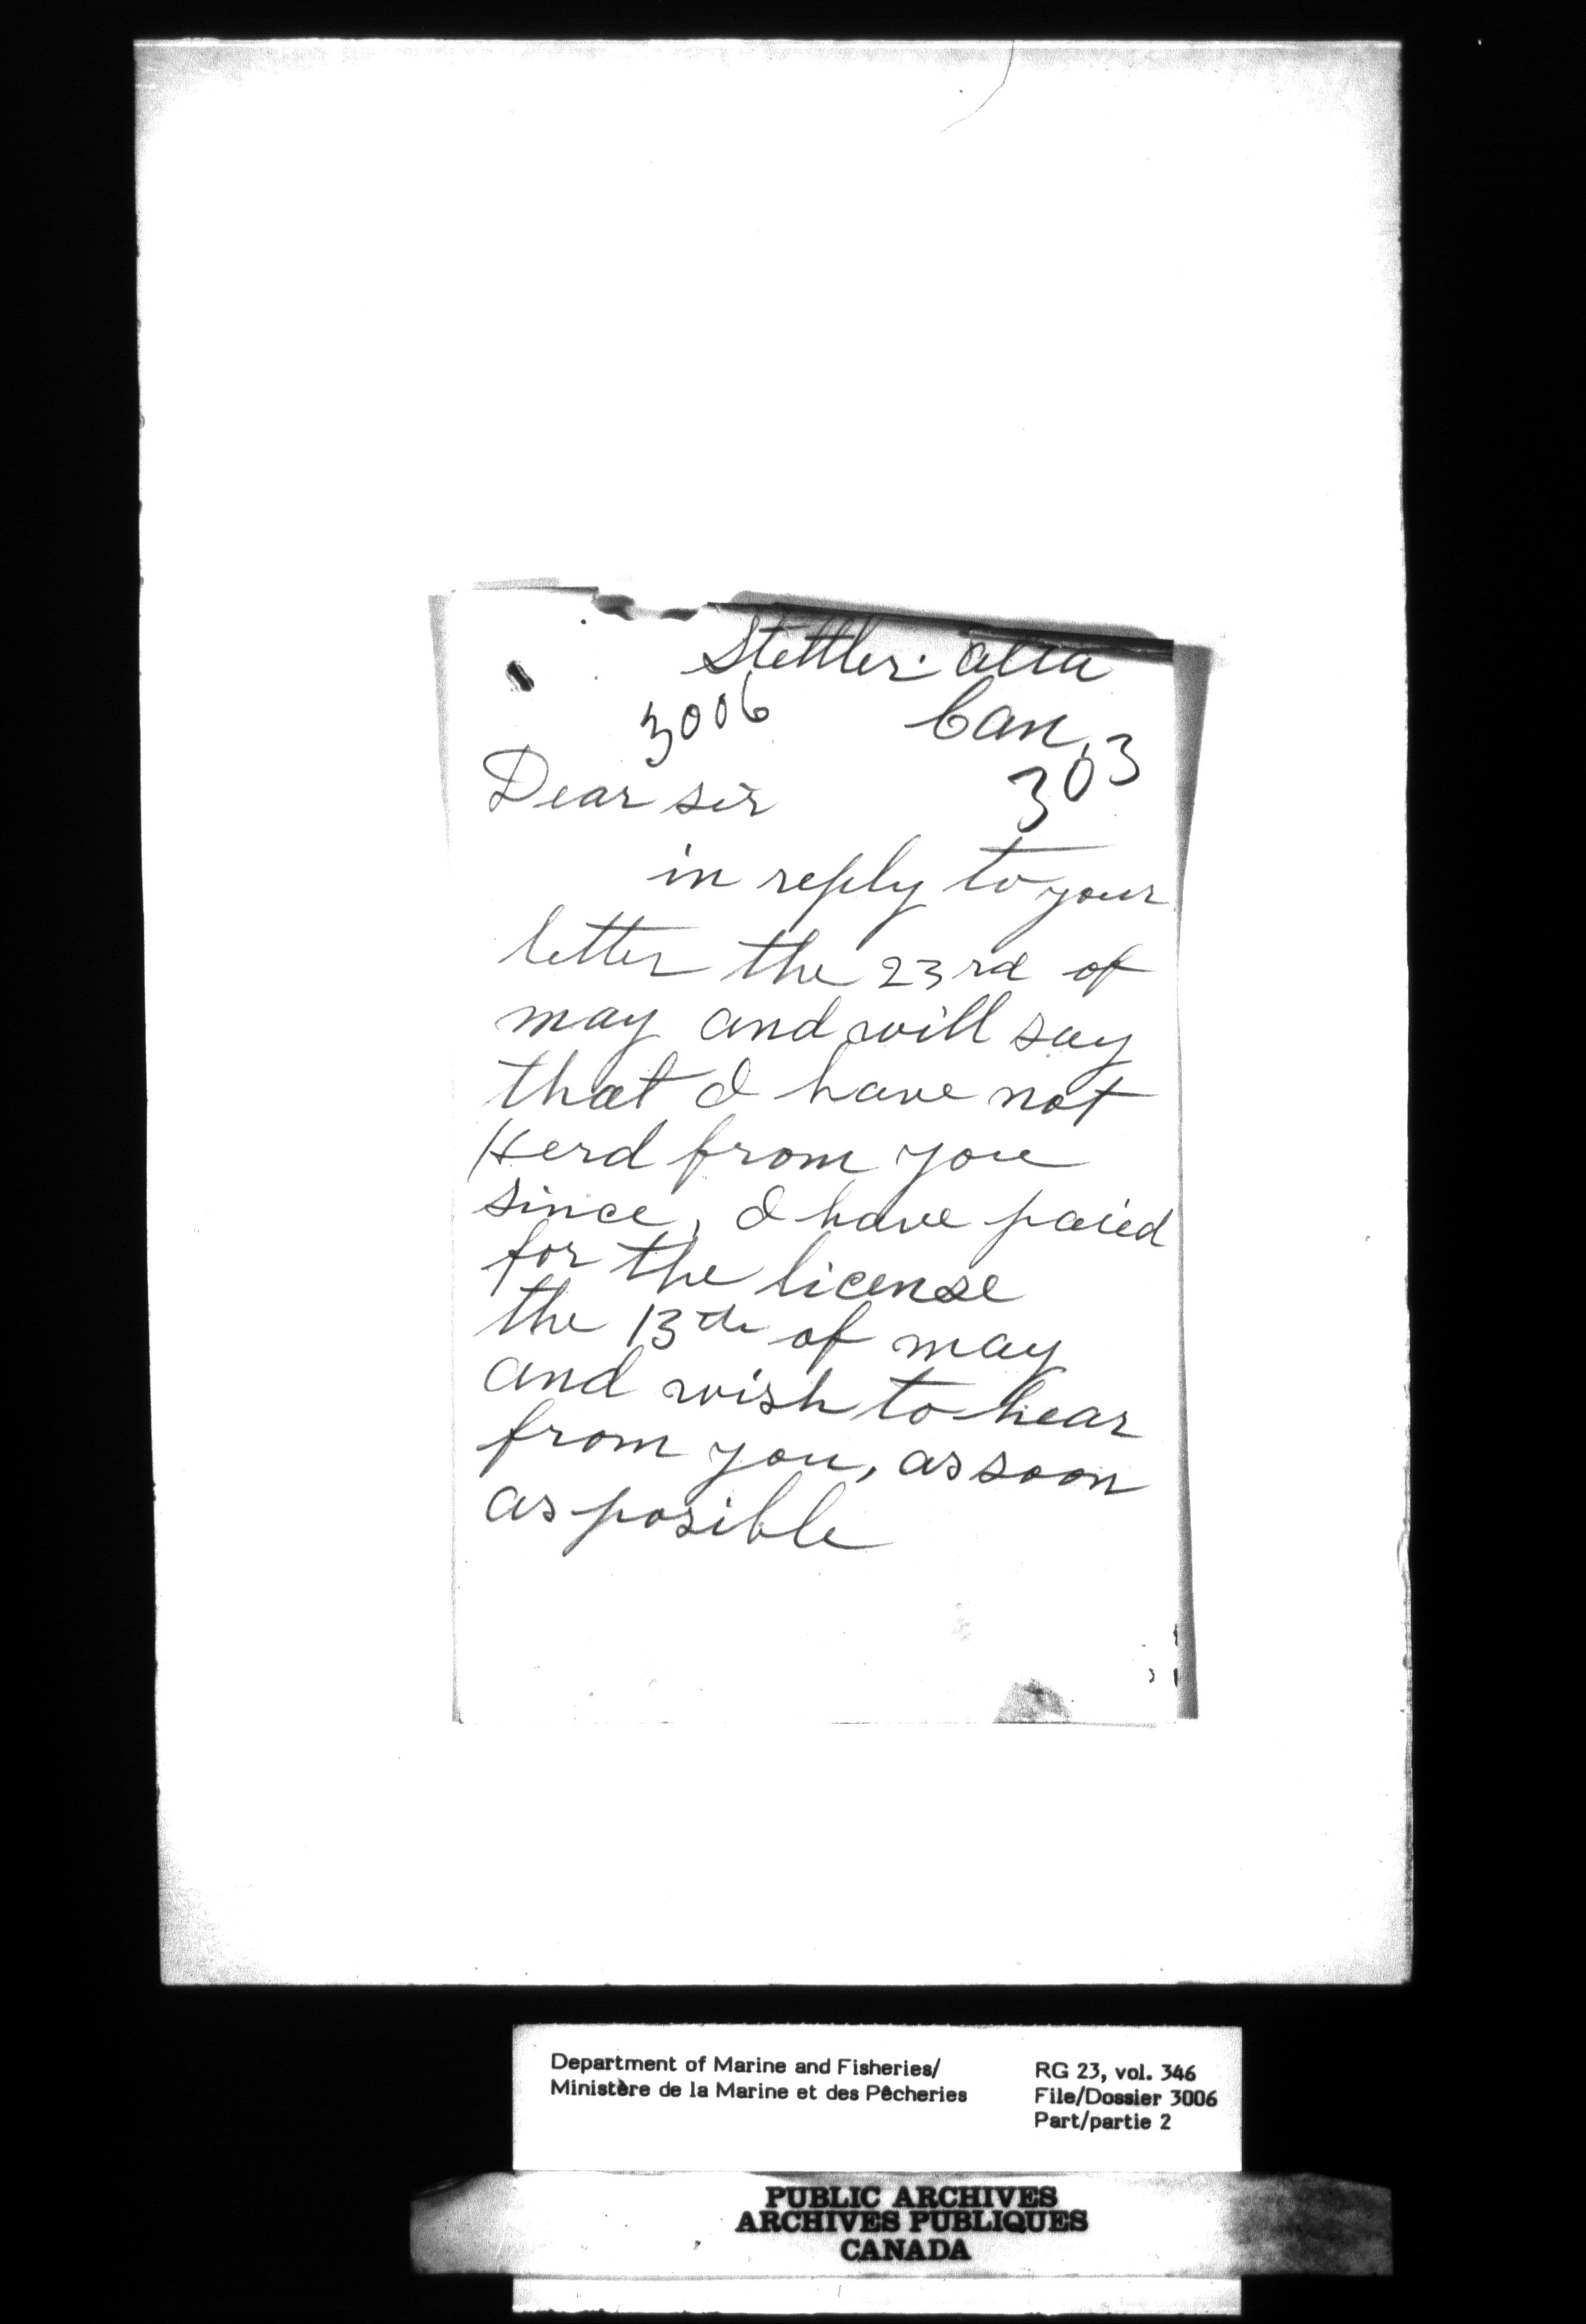 Stettler. alta
3006 Can,
303
Dear sir
in reply to your
letter the 23rd of
may and will say
that I have not
Herd from you
since, I have paied
for the license
the 13th of may
and wish to hear
from you, as soon
as posible
Department of Marine and Fisheries/
Ministère de la Marine et des Pêcheries
RG 23, vol. 346
File/Dossier 3006
Part/partie 2
PUBLIC ARCHIVES
ARCHIVES PUBLIQUES
CANADA